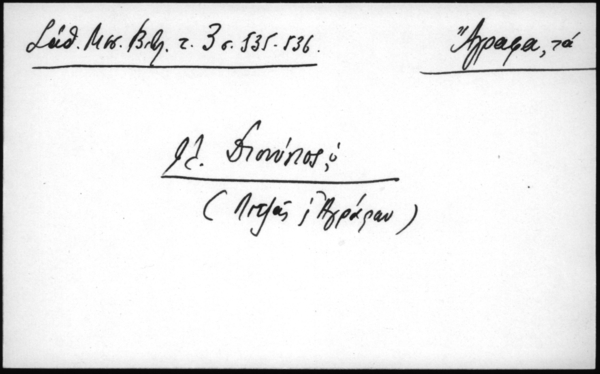 Σάθ. Μεσ. Βιβ. τ. 3 σ. 535-536.
Ἄγραφα, τά
βλ. Διονύσιος, ὁ
( Λιτζᾶς ἢ Ἀγράφων )